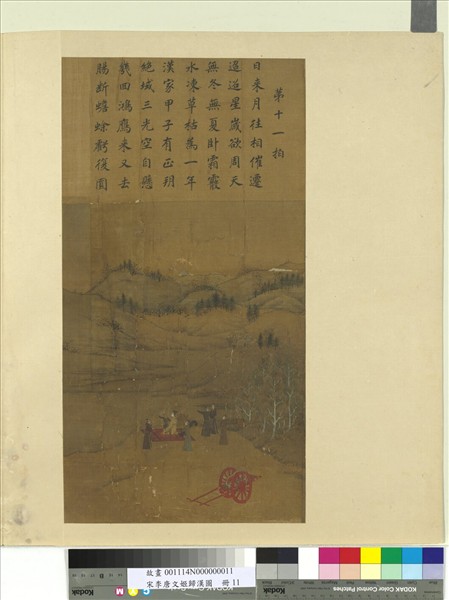 第十一拍
日来月往相催遷
迢迢星歲欲周天
無冬無夏卧霜霰
水凍草枯為一年
漢家甲子有正朔
絕域三光空自懸
幾回鴻鴈来又去
腸斷蟾蜍虧復圓
Kodak
KODAK Color Control Patches
故畫 001114N000000011
宋李唐文姬歸漢圖 冊 11
Kodak